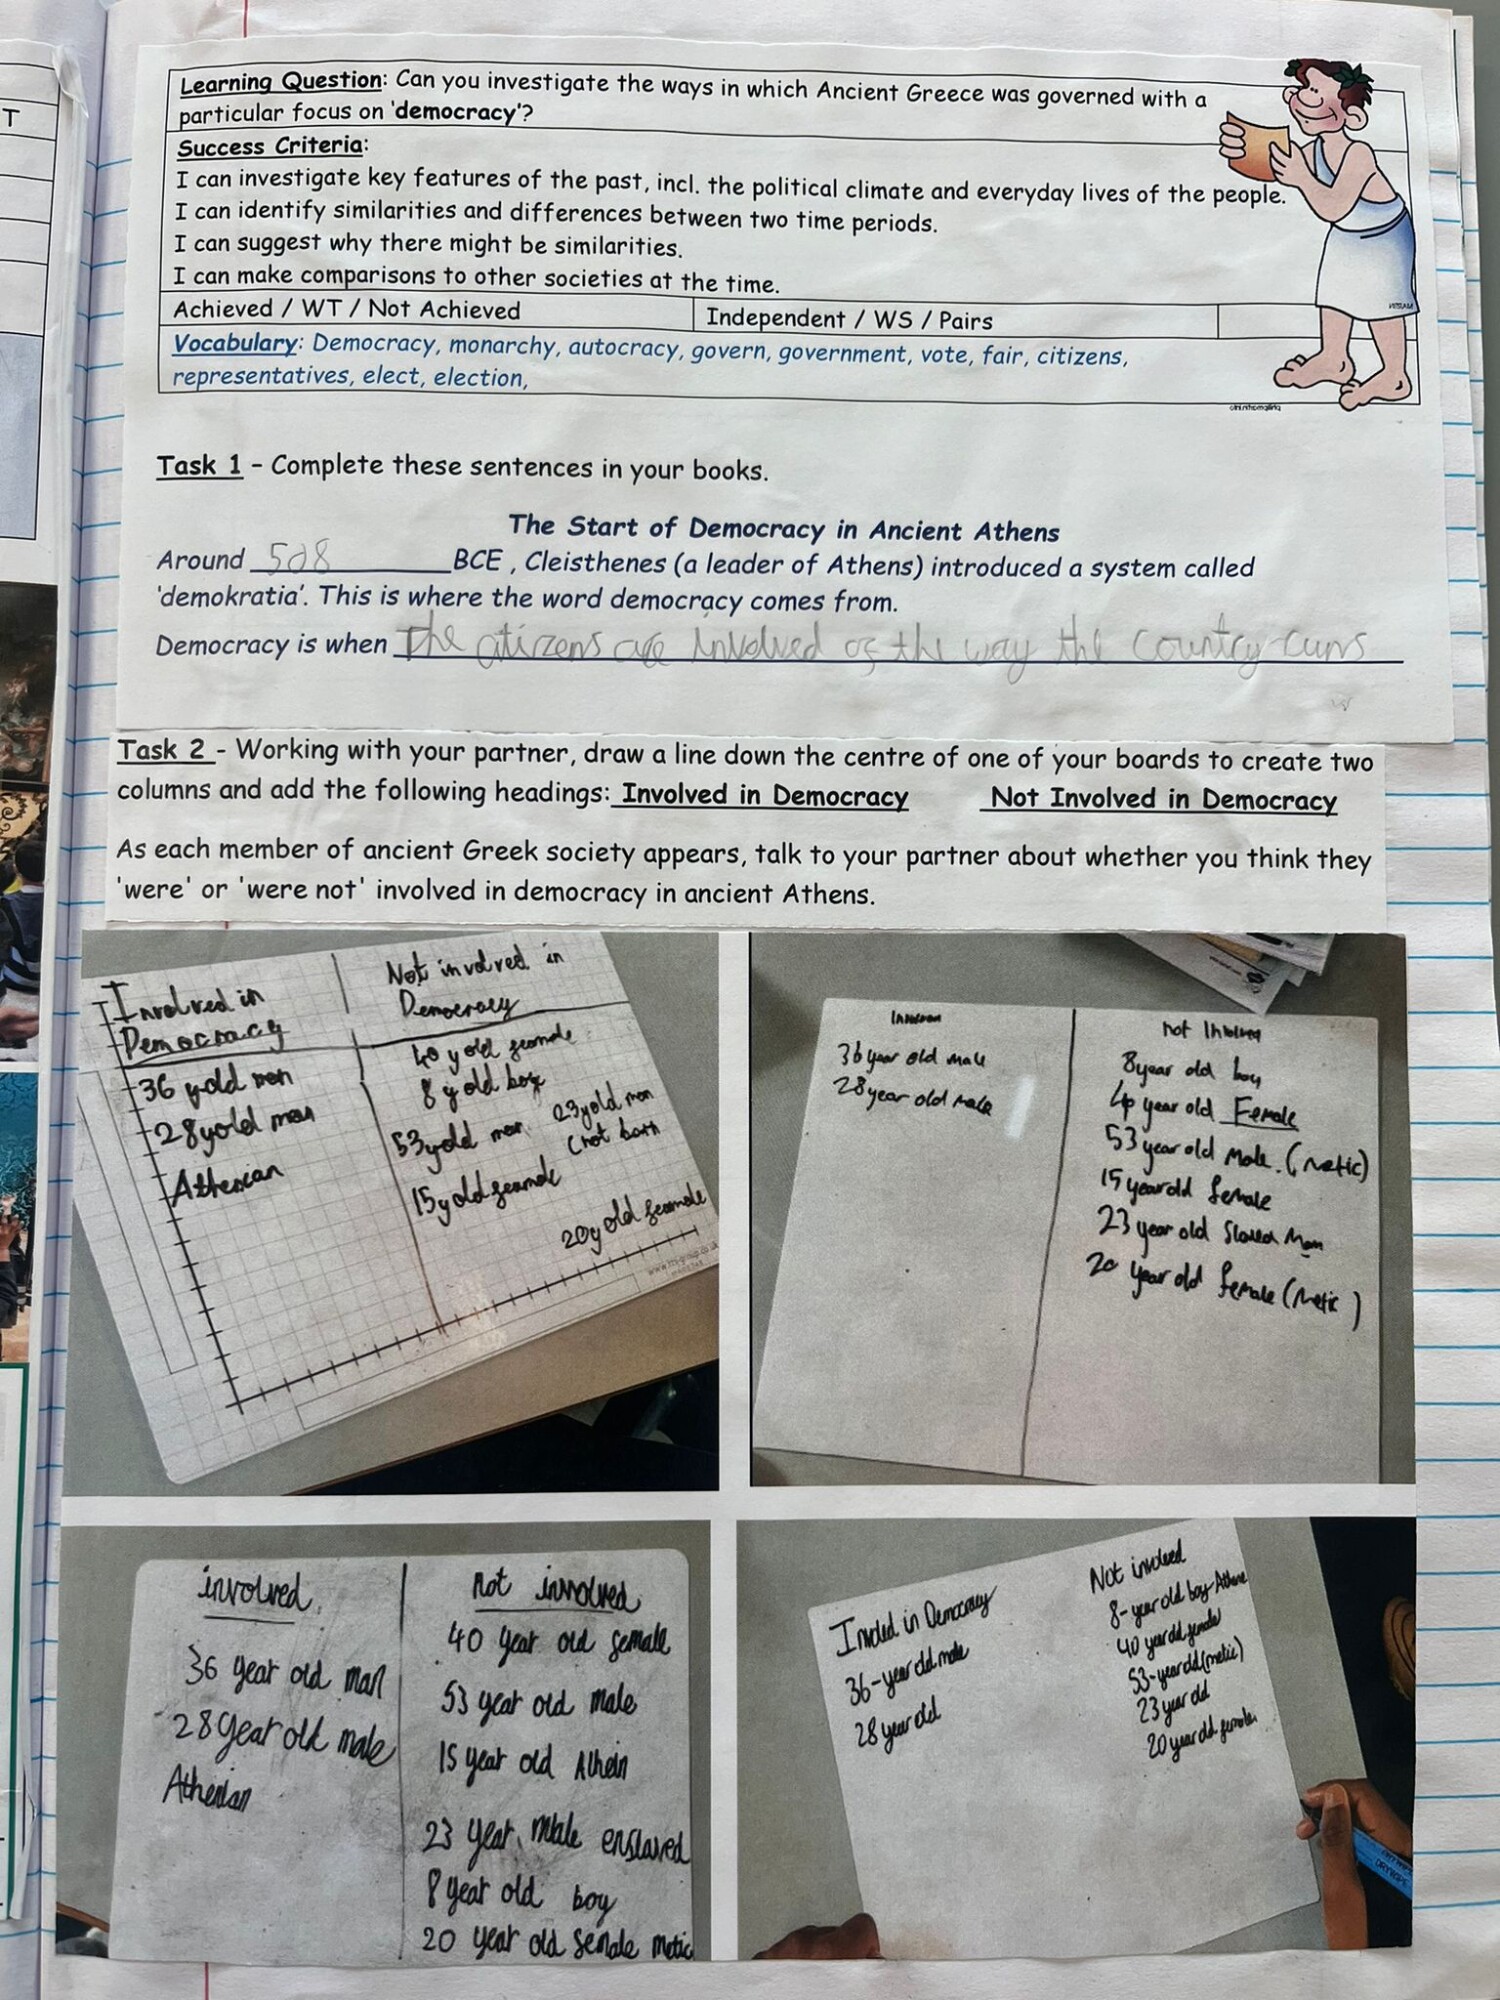 T
Learning Question: Can you investigate the ways in which Ancient Greece was governed with a
particular focus on 'democracy'?
Success Criteria:
I can investigate key features of the past, incl. the political climate and everyday lives of the people.
I can identify similarities and differences between two time periods.
I can suggest why there might be similarities.
I can make comparisons to other societies at the time.
Achieved / WT / Not Achieved
Independent / WS / Pairs
Vocabulary: Democracy, monarchy, autocracy, govern, government, vote, fair, citizens,
representatives, elect, election,
Task 1 - Complete these sentences in your books.
The Start of Democracy in Ancient Athens
Around 508 BCE , Cleisthenes (a leader of Athens) introduced a system called
'demokratia'. This is where the word democracy comes from.
Democracy is when the citizens are involved of the way the country runs
Task 2 - Working with your partner, draw a line down the centre of one of your boards to create two
columns and add the following headings: Involved in Democracy Not Involved in Democracy
As each member of ancient Greek society appears, talk to your partner about whether you think they
'were' or 'were not' involved in democracy in ancient Athens.
Involved in
Democracy
36 y old men
28 y old man
Athenian
Not involved in
Democracy
40 y old female
8 y old boy
53 y old man
23 y old man
(not born
15 y old female
20 y old female
36 year old male
28 year old male
not Involved
8 year old boy
40 year old Female
53 year old male. (metic)
15 year old female
23 year old Slaved Man
20 year old female (metic)
involved
36 year old man
28 year old male
Athenian
not involved
40 year old female
53 year old male
15 year old Athein
23 year male enslaved
8 year old boy
20 year old female metic
Involed in Democracy
36-year old male
28 year old
Not involved
8-year old boy Athene
40 year old female
53-year old (metic)
23 year old
20 year old female